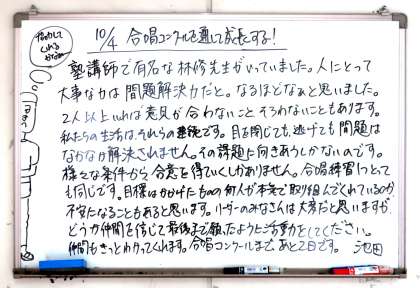 10/4 合唱コンクールを通して成長する!
塾講師で有名な林修先生がいっていました。人にとって
大事な力は問題解決力だと。なるほどなぁと思いました。
2人以上いれば意見が合わないこと そろわないこともあります。
私たちの生活はそれらの連続です。目を閉じても、逃げても問題は
なかなか解決されません。その課題に向きあうしかないのです。
様々な条件から、合意を得ていくしかありません。合唱練習にとって
も同じです。目標はかかげたものの何人が本気で取り組んでくれているのか
不安になることもあると思います。リーダーのみなさんは大変だと思いますが、
どうか仲間を信じて最後まで願ったように行動をしてください。
仲間もきっとわかってくれます。合唱コンクールまであと2日です。 池田